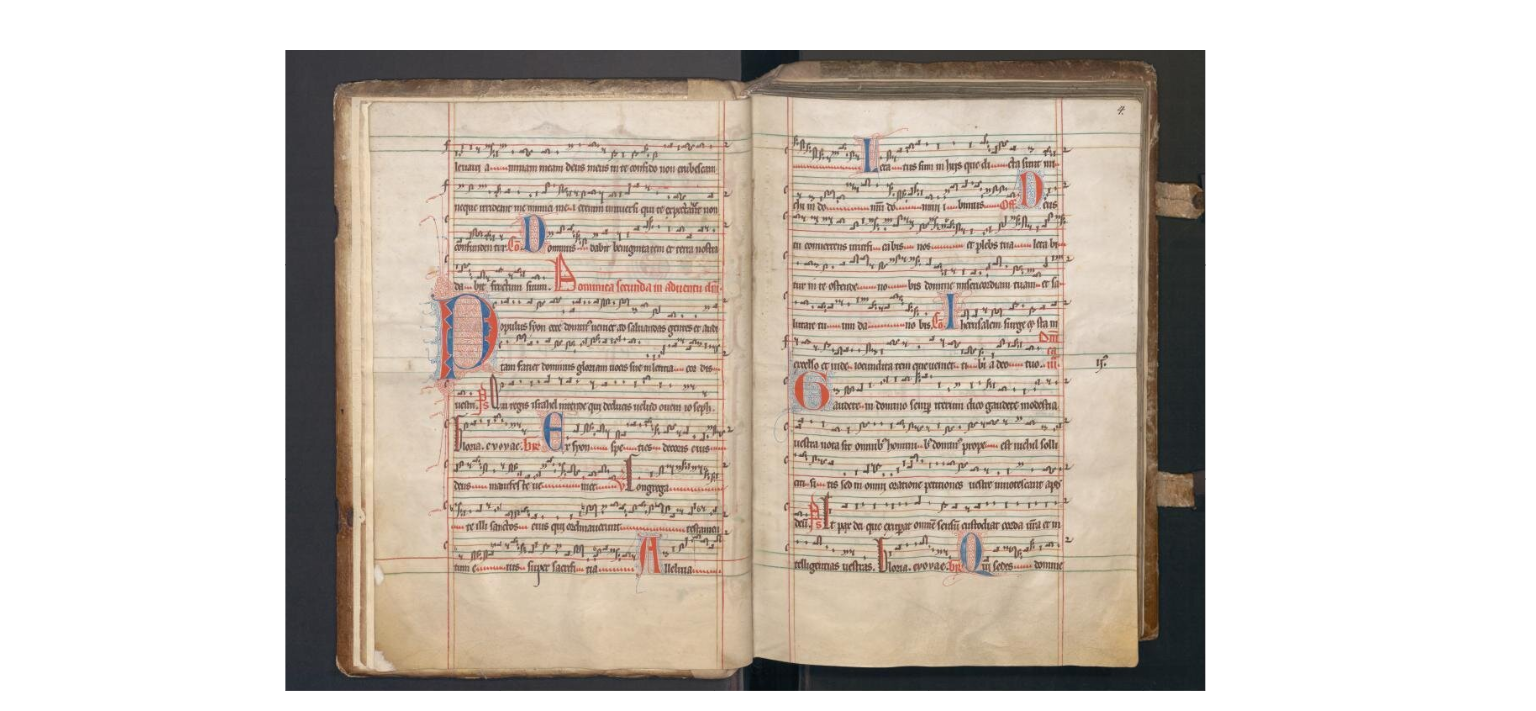 leuaui a nimam meam deus meus in te confido non erubescam
neque irrideant me inimici me i etenim uniuersi qui te expectant non
confunden tur. Co. Dominus dabit benignitatem et terra nostra
da bit fructum suum. Dominica secunda in aduentu dni
Populus syon ecce dominus ueniet ad saluandas gentes et audi
tam faciet dominus gloriam uocis sue in leticia cor dis
uestri. Ps Qui regis israhel intende qui deducis uelud ouem io seph.
Gloria. evovae. Ex syon spe cies decoris eius
deus manifeste ue niet. V Congrega
te illi sanctos eius qui ordinauerunt testamen
tum e ius super sacrifi cia Alleluia
4
Leta tus sum in hijs que di cta sunt mi
chi in do mum do mini i bimus. Off Deus
tu conuertens uiuifi cabis nos et plebs tua leta bi
tur in te ostende no bis domine misericordiam tuam et sa
lutare tu um da no bis. Co Iherusalem surge et sta in
Dnica
excelso et uide iocundita tem que ueniet ti bi a deo tuo. iii.
15.
Gaudete in domino semper iterum dico gaudete modestia
uestra nota sit omnibus hominibus dominus prope est nichil solli
citi si tis sed in omni oratione petitiones uestre innotescant apud
deum. Ps Et pax dei que exuperat omnem sensum custodiat corda uestra et in
telligentias uestras. Gloria. evovae. Qui sedes domine